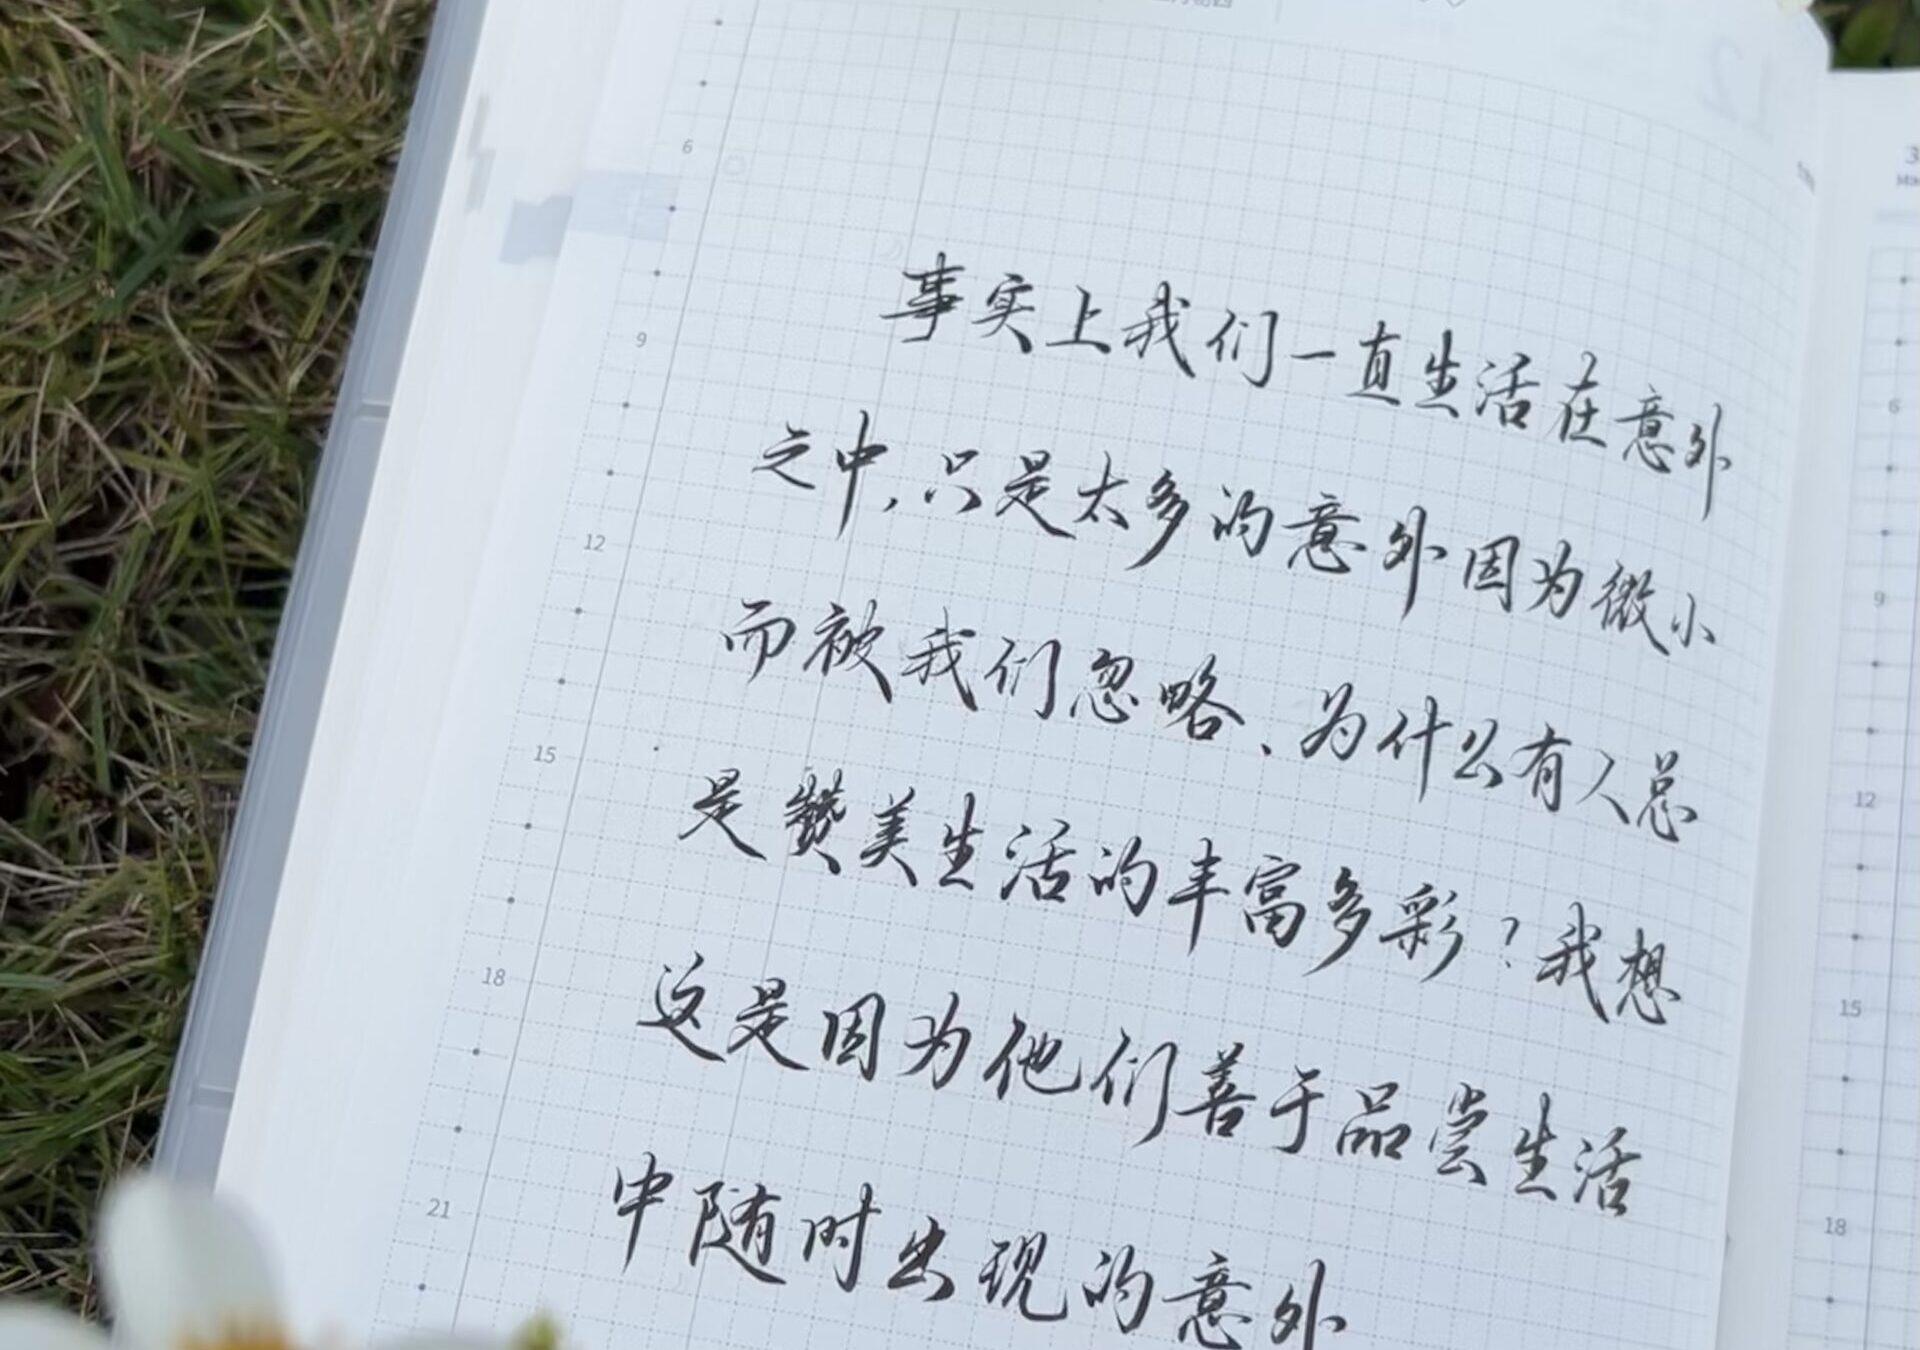 6
9
12
15
18
21
事实上我们一直生活在意外
之中，只是太多的意外因为微小
而被我们忽略、为什么有人总
是赞美生活的丰富多彩？我想
这是因为他们善于品尝生活
中随时出现的意外
6
9
12
15
18